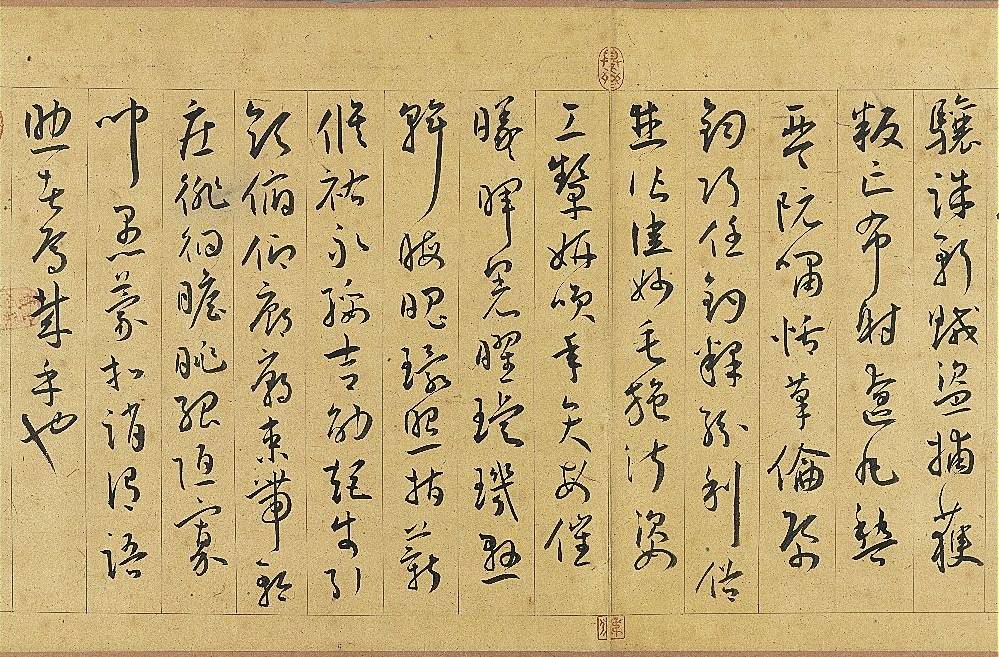 驤誅斬賊盜捕獲
叛亡布射遼丸嵇
琴阮嘯恬筆倫紙
鈞巧任釣釋紛利俗
並皆佳妙毛施淑姿
工顰妍笑年矢每催
曦暉晃曜璇璣懸
斡晦魄環照指薪
脩祜永綏吉劭矩步引
領俯仰廊廟束帶矜
莊徘徊瞻眺孤陋寡
聞愚蒙等誚謂語
助者焉哉乎也